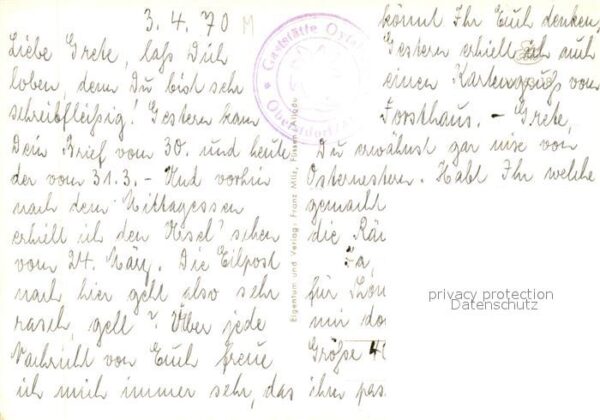 3.4.70 M
Liebe Grete, lass Dich
loben, denn Du bist sehr
schreibfleißig! Gestern kam
Dein Brief vom 30. und heute
der vom 31.3. - Und vorhin
nach dem Mittagessen
erhielt ich den sehen
vom 24. März. Die Eilpost
nach hier geht also sehr
rasch, gell? Über jede
Nachricht von Euch freue
ich mich immer sehr, das
Gaststätte
Oberstdorf
Eigentum und Verlag: Franz Milz, Füssen
könnt Ihr Euch denken,
Gestern erhielt ich auch
einen Kartengruß vom
Forsthaus. - Grete,
Du erwähnst gar nixe von
Osternestern. Habt Ihr welche
gemacht
die
Ja,
für
mir
Größe
ihrer pas
privacy protection
Datenschutz